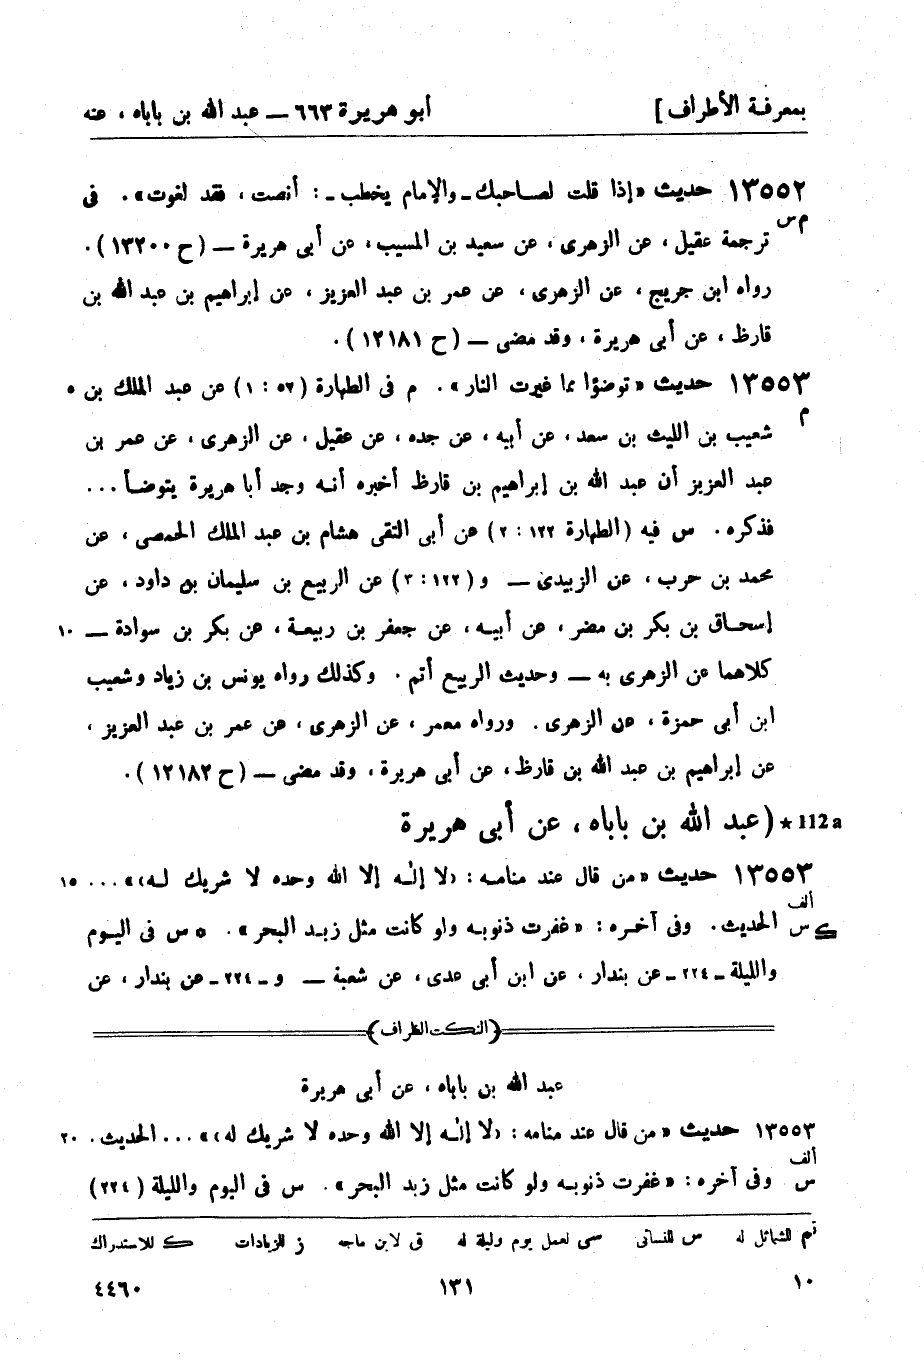 بمعرفة الأطراف ] أبو هريرة ٦٦٣ ــ عبد الله بن باباه ، عنه
١٣٥٥٢ حديث «إذا قلت لصاحبك ـ والإمام يخطب ـ : أنصت ، فقد لغوت» . فى
م س ترجمة عقيل ، عن الزهرى ، عن سعيد بن المسيب ، عن أبى هريرة ــ (ح ١٣٢٠٠) .
رواه ابن جريج ، عن الزهرى ، عن عمر بن عبد العزيز ، عن إبراهيم بن عبد الله بن
قارظ ، عن أبى هريرة ، وقد مضى ــ (ح ١٢١٨١) .
١٣٥٥٣ حديث «توضؤا مما غيرت النار» . م فى الطهارة (٥٧ : ١) عن عبد الملك بن ٥
م شعيب بن الليث بن سعد ، عن أبيه ، عن جده ، عن عقيل ، عن الزهرى ، عن عمر بن
عبد العزيز أن عبد الله بن إبراهيم بن قارظ أخبره أنه وجد أبا هريرة يتوضأ ...
فذكره . س فيه (الطهارة ١٢٢ : ٢) عن أبى التقى هشام بن عبد الملك الحمصى ، عن
محمد بن حرب ، عن الزبيدى ــ و (١٢٢ : ٣) عن الربيع بن سليمان بن داود ، عن
إسحاق بن بكر بن مضر ، عن أبيه ، عن جعفر بن ربيعة ، عن بكر بن سوادة ــ ١٠
كلاهما عن الزهرى به ــ وحديث الربيع أتم . وكذلك رواه يونس بن زياد وشعيب
ابن أبى حمزة ، عن الزهرى . ورواه معمر ، عن الزهرى ، عن عمر بن عبد العزيز ،
عن إبراهيم بن عبد الله بن قارظ ، عن أبى هريرة ، وقد مضى ــ (ح ١٢١٨٢) .
112a ★ (عبد الله بن باباه ، عن أبى هريرة
١٣٥٥٣ حديث «من قال عند منامه : ‹لا إلٰه إلا الله وحده لا شريك له›» ... ١٥
ألف
ك س الحديث . وفى آخره : «غفرت ذنوبه ولو كانت مثل زبد البحر» . ٥ س فى اليوم
والليلة ـ ٢٢٤ ـ عن بندار ، عن ابن أبى عدى ، عن شعبة ــ و ـ ٢٢٤ ـ عن بندار ، عن
(النكت الظراف)
عبد الله بن باباه ، عن أبى هريرة
١٣٥٥٣ حديث «من قال عند منامه : ‹لا إلٰه إلا الله وحده لا شريك له›» ... الحديث . ٢٠
ألف
س وفى آخره : «غفرت ذنوبه ولو كانت مثل زبد البحر» . س فى اليوم والليلة (٢٢٤)
تم للشمائل له س للنسائى سى لعمل يوم وليلة له ق لابن ماجه ز للزيادات ك للاستدراك
١٠ ١٣١ ٤٤٦٠